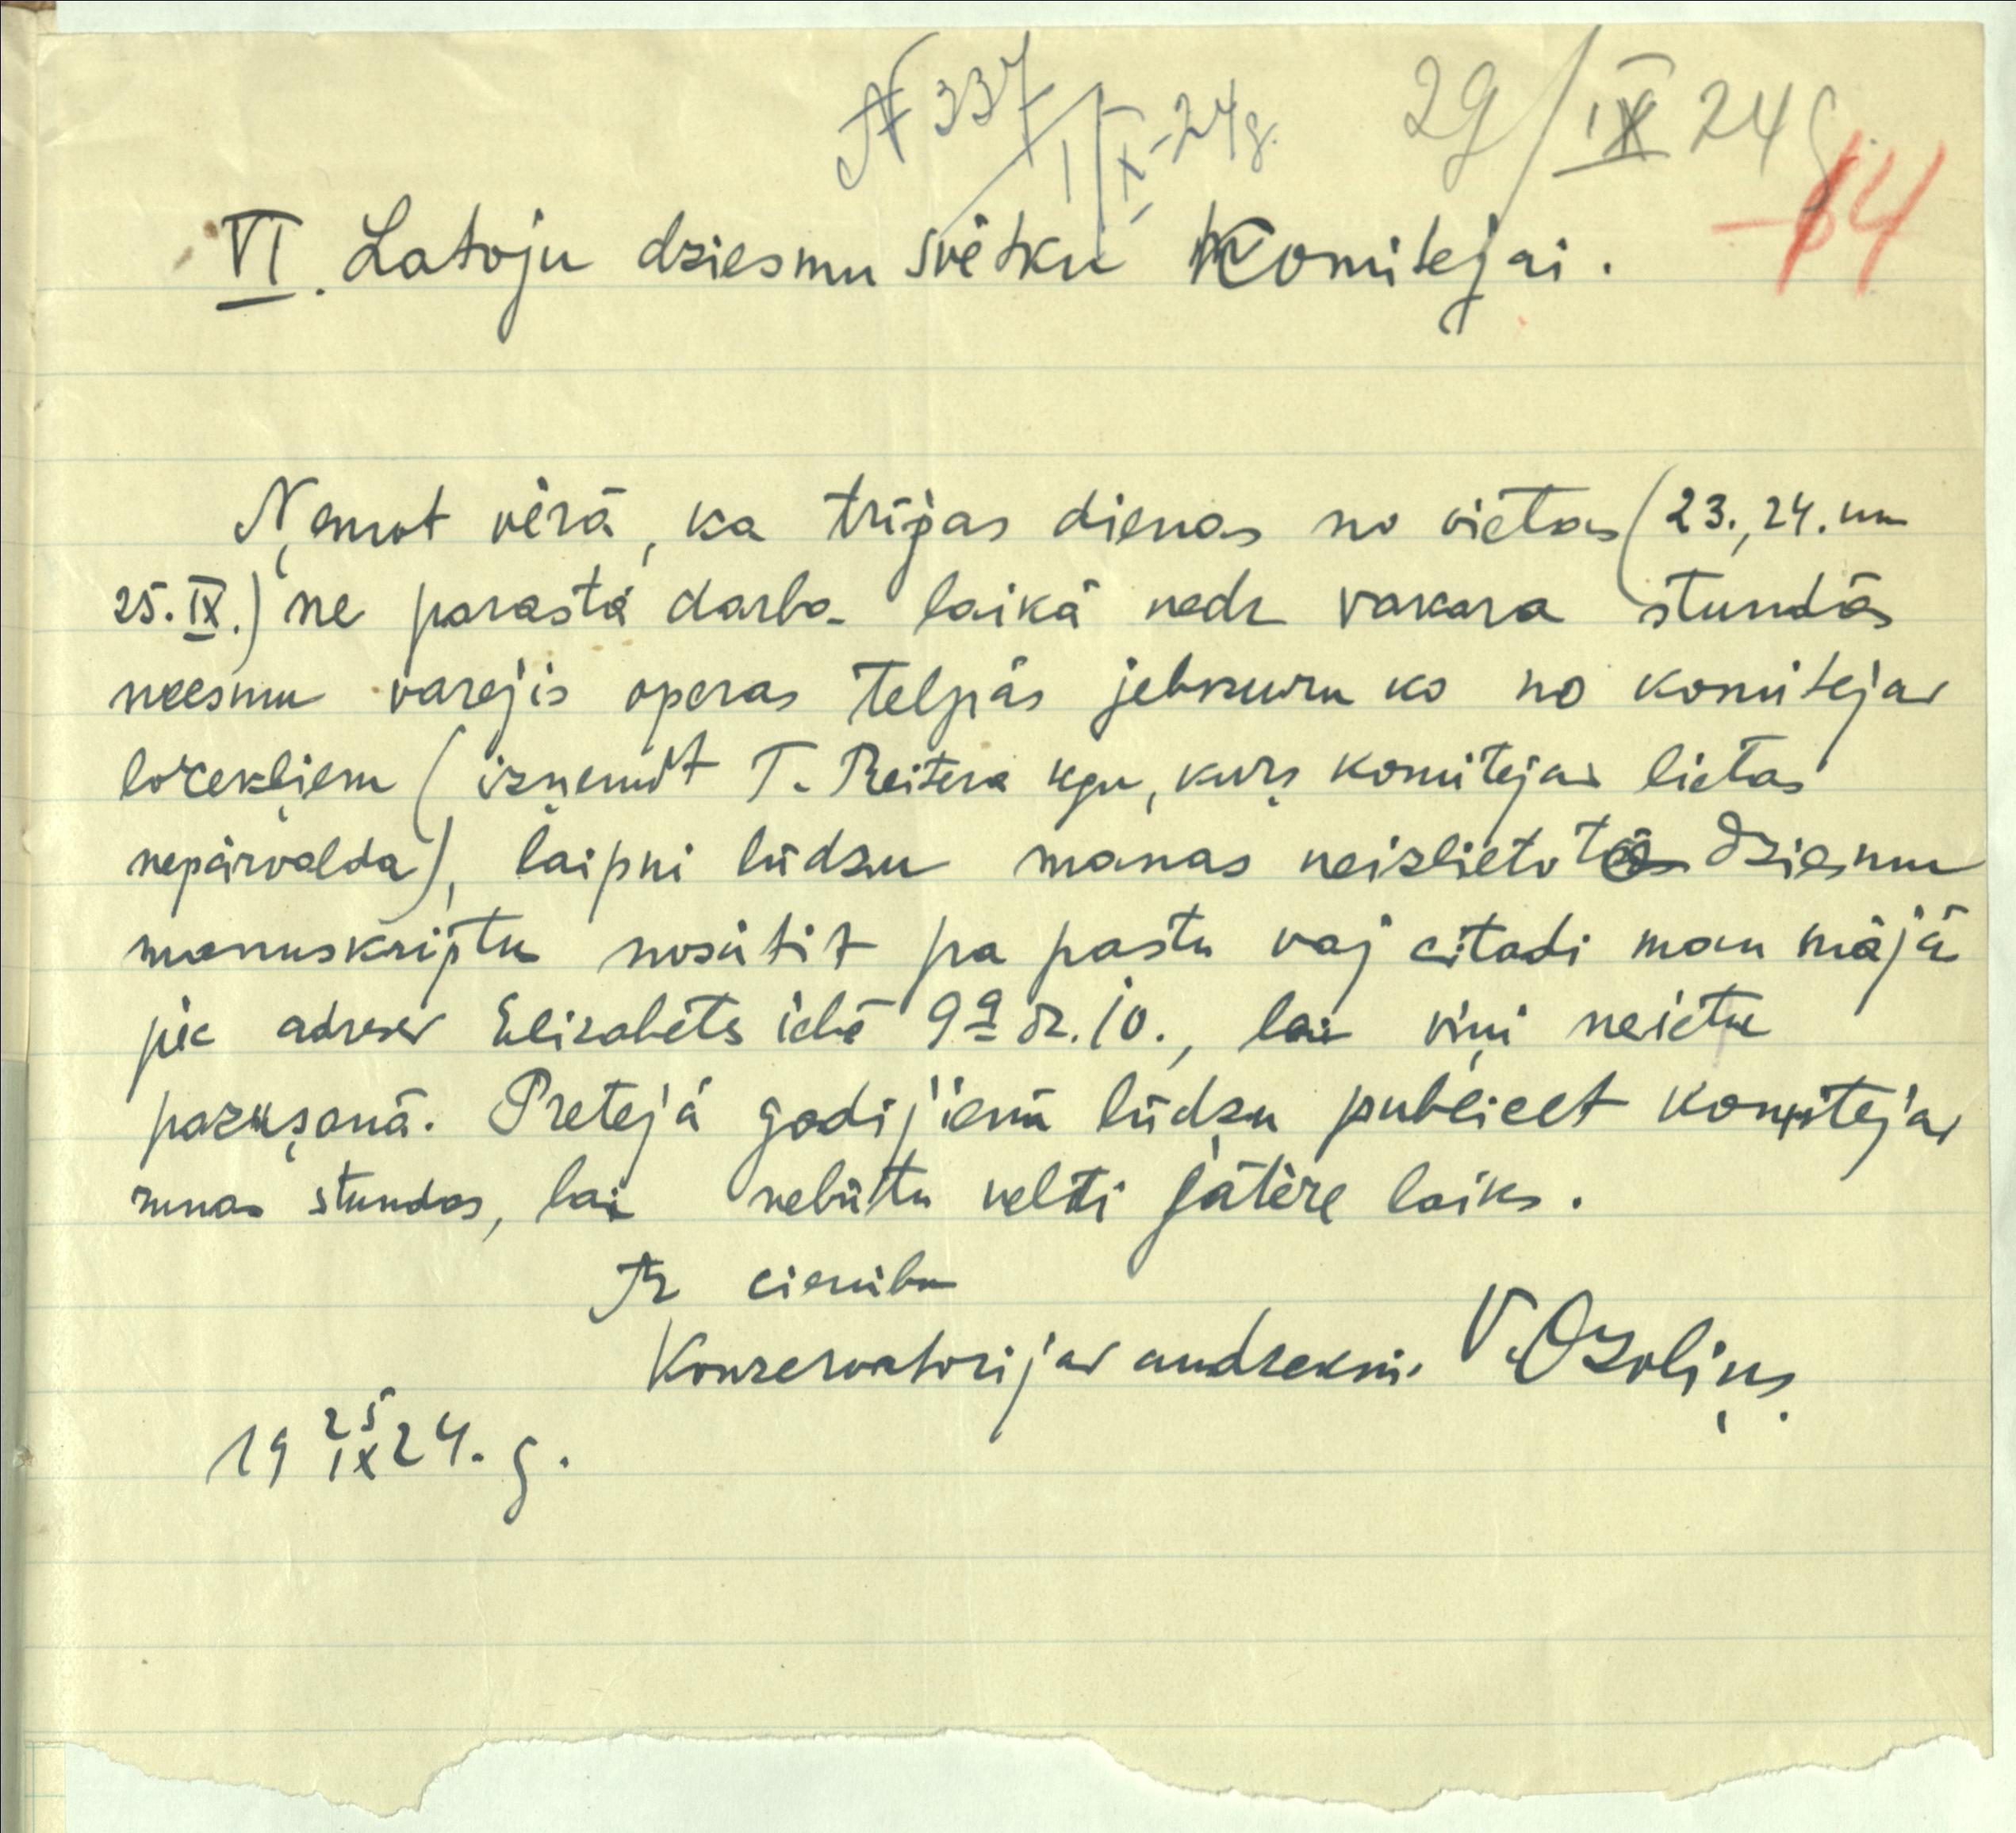 N 337 1/X-24g.
29/IX 24 g.
64
VI. Latvju dziesmu svētku Komitejai.
Ņemot vērā, ka trijas dienas no vietas (23., 24. un
25. IX.) ne parastā darba laikā nedz vakara stundās
neesmu varejis operas telpās jebkuru ko no komitejas
locekļiem (izņemōt T. Reitera kgu, kurş komitejas lietas
nepārvalda), laipni lūdzu manas neizlietotās dziesmu
manuskriptu nosūtit pa pastu vaj citadi man mājā
pie adreses Elizabetes ielā 9a dz. 10., lai viņi neietu
pazuşanā. Pretejā gadijienā lūdzu publicet komitejas
runas stundas, lai nebūtu velti jātērē laiks.
Ar cieņibu
Konzervatorijas audzeknis V. Ozoliņş.
19 25/IX 24. g.